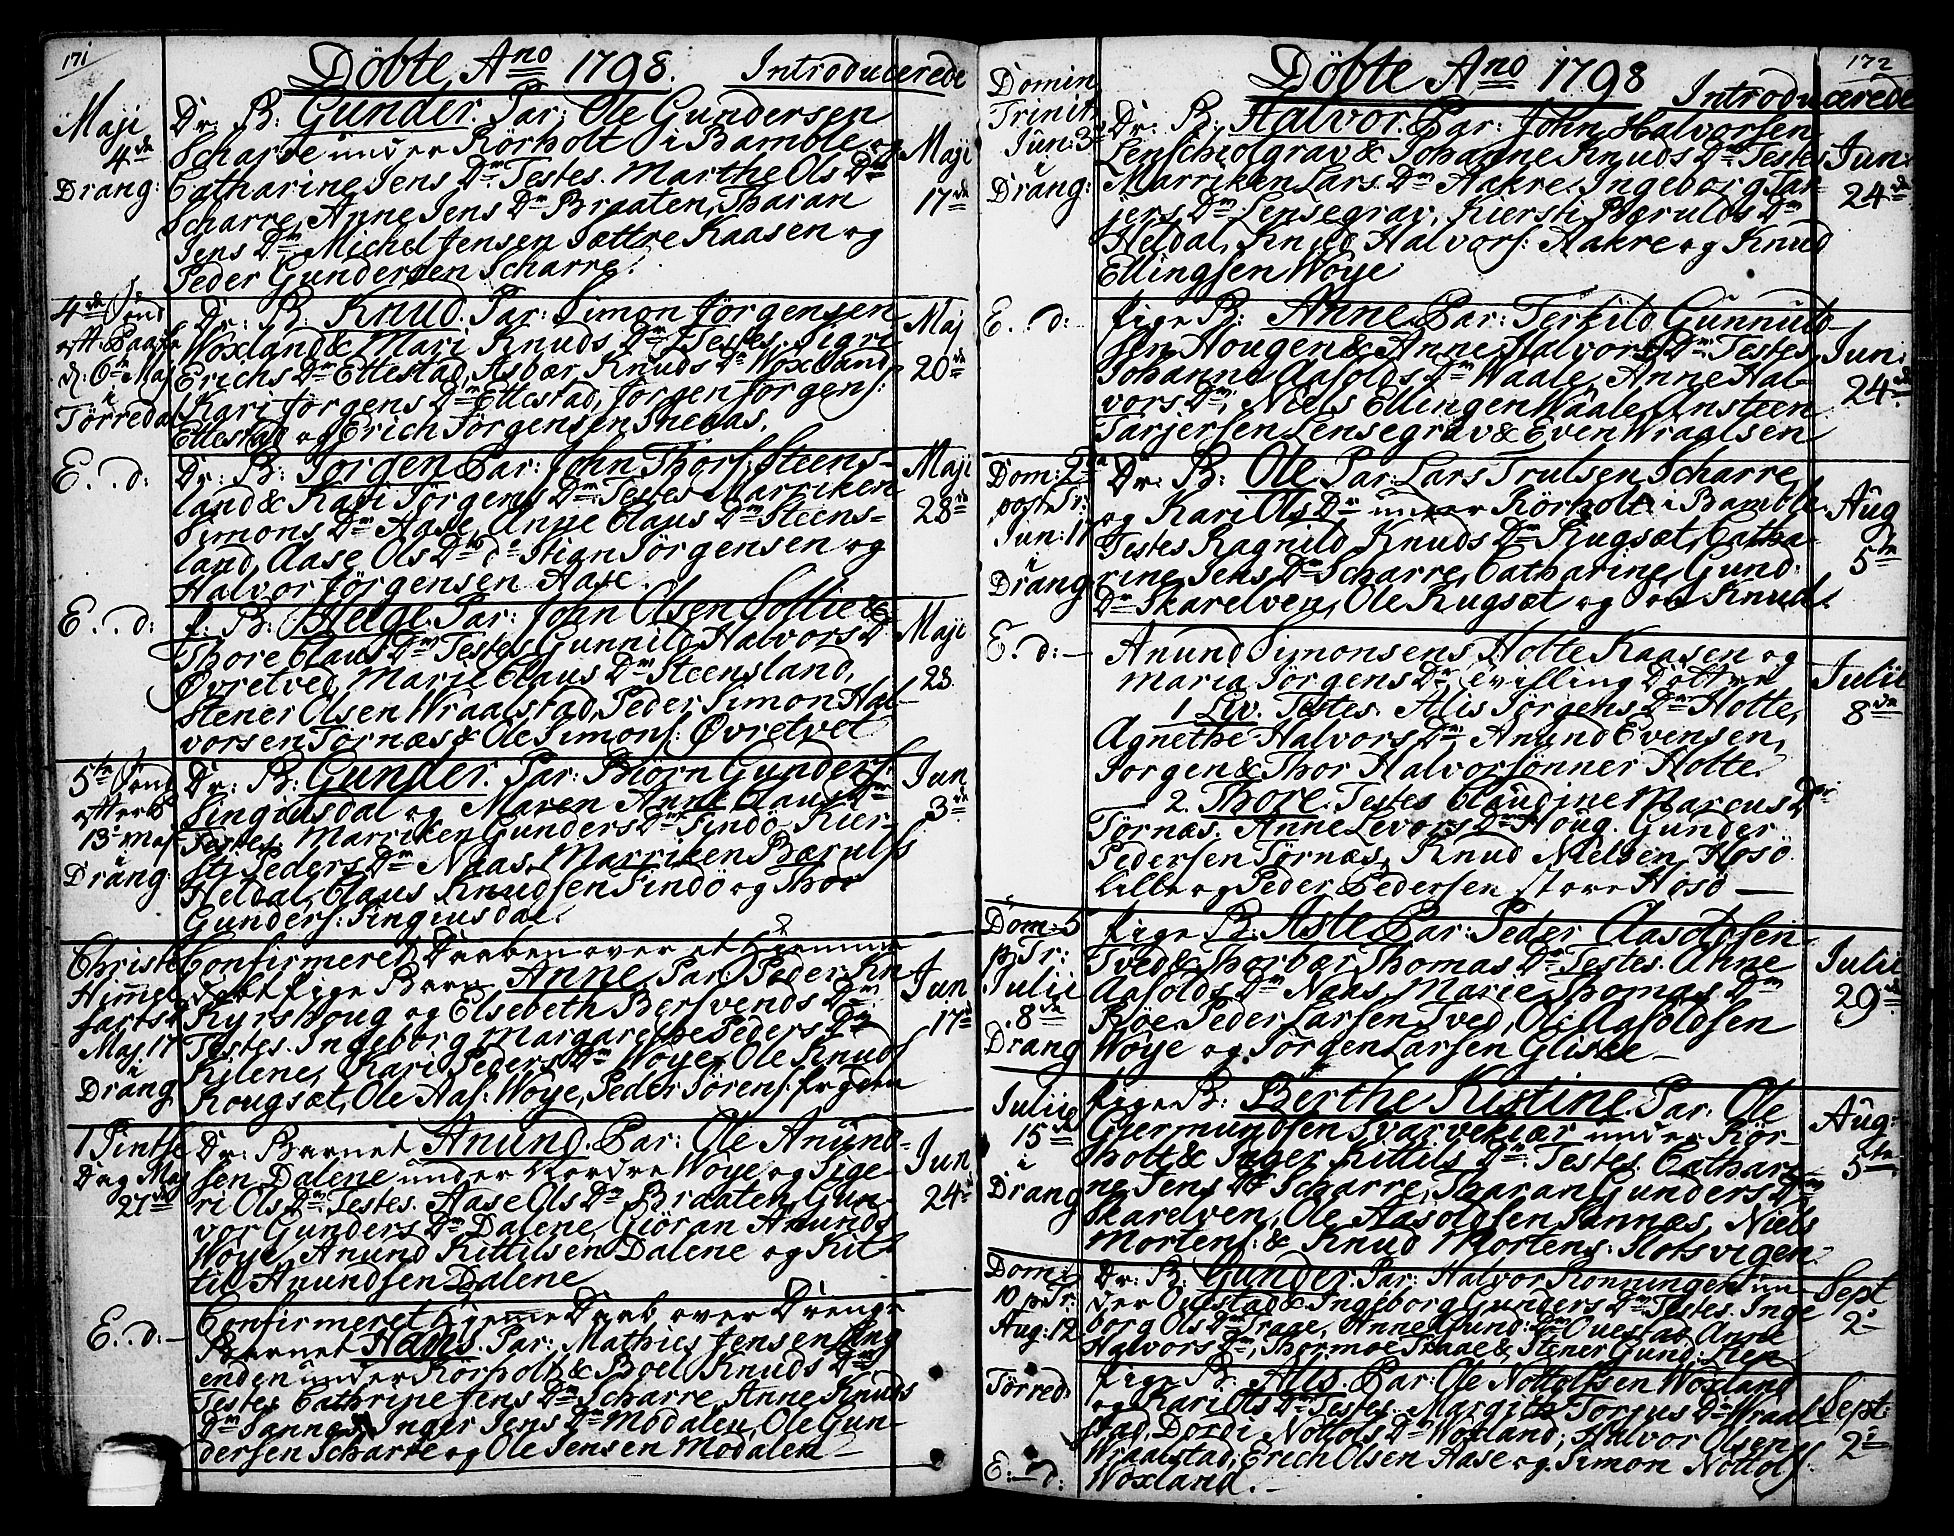 171
Döbte Ano 1798. Introducerede
Maji 4de Drang:
Dr: B: Gunder. Par: Ole Gundersen
Scharre under Rörholt i Bamble og
Catharine Jens Dr Testes. Marthe Ols Dr
Scharre, Anne Jens Dr Braaten, Tharan
Jens Dr Michel Jensen Sættre Kaasen og
Peder Gundersen Scharre.
Maji 17de
4de Sönd eft: Paaske d: 6te Maj i Törredal
Dr: B: Knud. Par: Simon Jörgensen
Woxland & Mari Knuds Dr Testes. Sigri
Erichs Dr Ettestad, Asbær Knuds Dr Woxland
Kari Jörgens Dr Ettestad, Jörgen Jörgens:
Ettestad og Erich Jörgensen Snebas.
Maj 20de
E. d:
Dr: B: Jörgen Par: John Thors: Steens-
land & Kari Jörgens Dr Testes Marriken
Simons Dr Aase, Anne Claus Dr Steens-
land, Aase Ols Dr do Stian Jörgensen og
Halvor Jörgensen Aase.
Maji 28de
E. d:
P: B: Helge. Par: John Olsen Sollie &
Thore Claus Dr Testes Gunnild Halvors Dr
Øvretved, Marie Claus Dr Steensland,
Stener Olsen Wraalstad, Peder Simon Hal-
vorsen Tørnæs & Ole Simons: Øvretvet
Maji 28
5te Sönd efter P 13 Maj Drang:
Dr: B: Gunder. Par: Biørn Gunders:
Singiusdal og Maren Anne Claus Dr
Testes. Marriken Gunders Dr Findö Kier-
sti Peders Dr Naas, Marriken Bærulfs
Heldal, Claus Knudsen Findö og Thor
Gunders: Singiusdal.
Jun 3de
Christi Himmelfarts Maj. 17 i Drang
Confirmeret Daaben over et Hjemme
döbt Pige Barn Anne Par: Peder Kn
Kyrshoug og Elsebeth Bersvends Dr
Testes. Ingeborg Margarethe Peders Dr
Kilene, Kari Peders Dr Woye, Ole Knuds
Rougsæt, Ole Aas: Woye, Peder Sörens:
Jun 17de
1 Pintse Dag Maj 27de
Dr: Barnet Anund. Par: Ole Anund-
sen Dalene under Nordre Woye og Sige-
ri Ols Dr Testes. Aase Ols Dr Braaten, Gun-
vor Gunders Dr Dalene, Giöran Anunds
Woye, Anund Kittilsen Dalene og Kit-
til Anundsen Dalene
Jun 24de
E. d:
Confirmeret Hjemme Daab over Drenge
Barnet Hans. Par: Mathies Jensen Eng
enden under Rörholt & Boel Knuds Dr
Testes Cathrine Jens Dr Scharre, Anne Knuds
Dr Sannes, Inger Jens Dr Modalen, Ole Gun-
dersen Scharre og Ole Jensen Modalen
172
Döbte Ano 1798 Introducerede
Domin Trinit Jun: 3 i Drang:
Dr: B: Halvor. Par: John Halvorsen
Lenschiolgrav & Johanne Knuds Dr Testes
Marriken Lars Dr Aakre, Ingeborg Tar-
jers Dr Lensegrav, Kiersti Bærulds Dr
Heldal, Knud Halvors: Aakre og Knud
Ellingsen Woye
Jun: 24de
E. d:
Pige B: Anne. Par: Terkild Gunnuld-
sen Hougen & Anne Halvors Dr Testes,
Johanne Aasolds Dr Waale, Anne Hal-
vors Dr, Niels Ellingen Waale, Ansteen
Tarjersen Lensegrav & Even Wraalsen
Jun: 24de
Dom: 2da post Tr: Jun: 17 i Drang
Dr: B: Ole Par: Lars Trulsen Scharre
og Kari Ols Dr under Rörholt i Bamble
Testes Ragnild Knuds Dr Rugsæt, Catha-
rine Jens Dr Scharre, Catharine Gund:
Dr Skarelven, Ole Rugsæt og Ole Knud:
Aug 5te
E. d:
Anund Simonsens Holte Kaasen og
Maria Jörgens Dr Tvilling Döttre
1 Liv. Testes. Alis Jörgens Dr Holte,
Agnethe Halvors Dr, Anund Evensen,
Jorgen & Thor Halvorsönner Holte.
2. Thore. Testes Claudine Marcus Dr
Törnæs. Anne Levors Dr Houg. Gunder
Pedersen Törnæs, Knud Nielsen Hosö
Lille og Peder Pedersen store Hosö
Julii 8de
Dom: 5 p: Tr: Julii 8de Drang
Pige B: Aste. Par: Peder Aasoldsen
Tved & Thorbær Thomas Dr Testes. Anne
Aasolds Dr Naas, Marie Thomas Dr
Röe, Peder Larsen Tved, Ole Aasoldsen
Woye og Jörgen Larsen Gliske
Julii 29de
Julii 15de i Drang
Pige B: Berthe Kistine. Par: Ole
Giermundsen Svarvekiær under Rör-
holt & Inger Kittils Dr Testes. Cathari-
ne Jens Dr Scharre, Tharan Gunders Dr
Skarelven, Ole Aasoldsen Sannæs, Niels
Mortens: & Knud Mortens: Slotsvigen
Aug: 5te
Dom: 10 p: Tr: Aug: 12
Dr: B: Gunder. Par: Halvor Ronningen un-
der Ouestad & Ingeborg Gunders Dr Testes. Inge
borg Ols Dr Trage, Anne Gund: Dr Ouestad Anne
Halvors Dr, Thormoe Traae & Stener Gund: Ken
Sept 2
Törred:
E. d:
Pige B: Alis. Par: Ole Nottolfsen Woxland
og Kari Ols Dr Testes. Margith Torjus Dr Wraal
stad, Dordi Nottols Dr Woxland, Halvor Olsen
Wraalstad, Erich Olsen Aase og Simon Nottolf:
Woxland.
Sept: 2